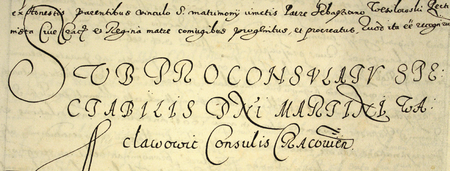 ex honestis parentibus vinculo S. matrimonij unctis Patre Sebastiano
mistrii Cive Crac: et Regina matre coniugibus progenitus, et procreatus. Quod ita esse
SUB PROCONSULATU SPE:
CTABILIS DNI MARTINI, WA:
clawowic Consulis Cracovien